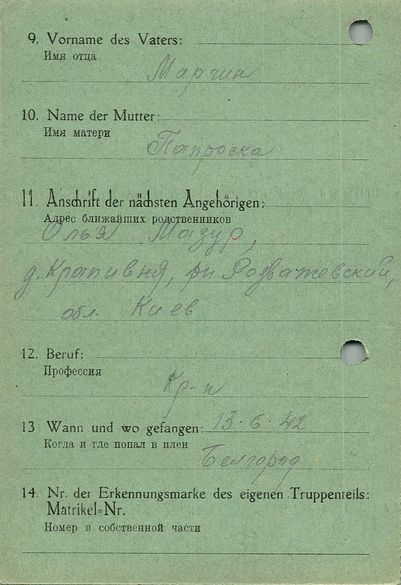 9. Vorname des Vaters:
Имя отца
Марчин
10. Name der Mutter:
Имя матери
Папроска
11. Anschrift der nächsten Angehörigen:
Адрес ближайших родственников
Олья Мазур,
д. Крапивня, рн Розважевский,
обл. Киев
12. Beruf:
Профессия
Кр-н
13 Wann und wo gefangen: 13.6.42
Когда и где попал в плен
Белгород
14. Nr. der Erkennungsmarke des eigenen Truppenteils:
Matrikel=Nr.
Номер в собственной части